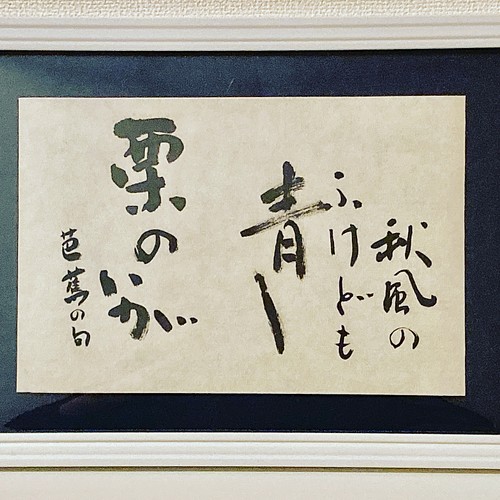 秋風の
ふけども
青し
栗の
いが
芭蕉の句